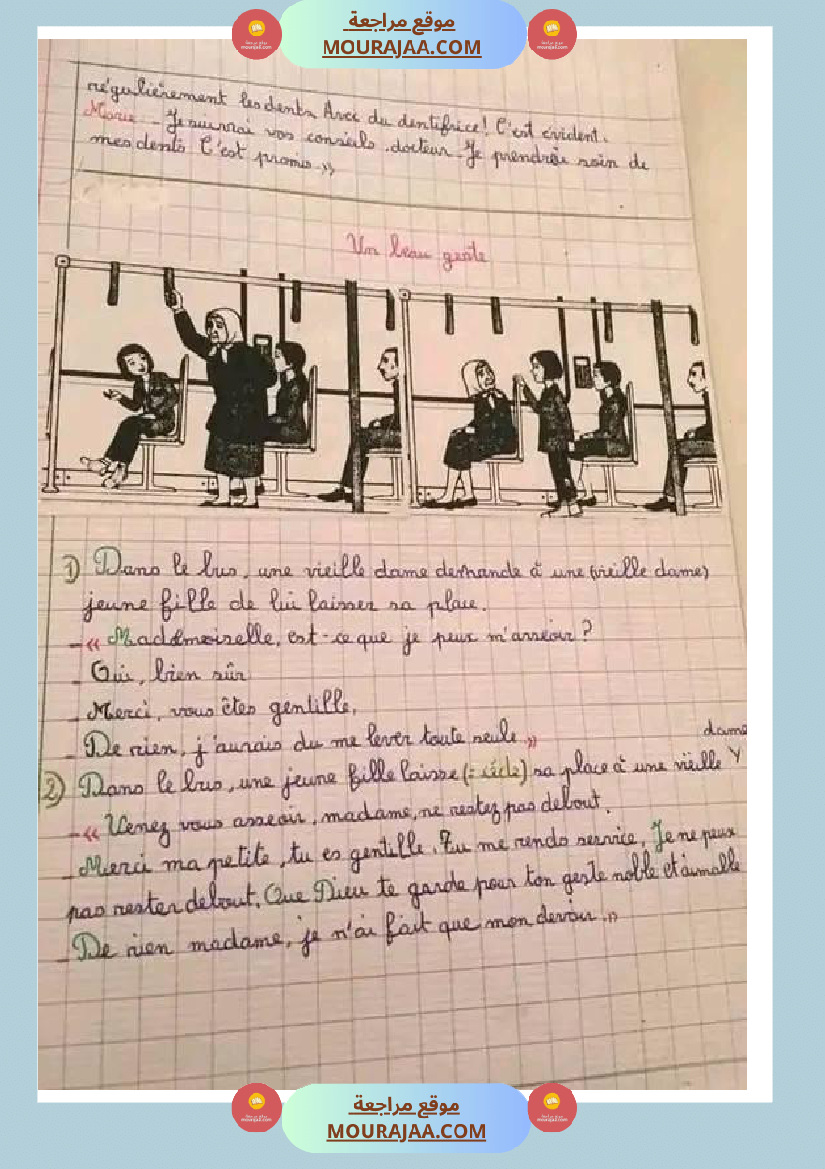 موقع مراجعة
MOURAJAA.COM
régulièrement les dents. Avec du dentifrice! C'est évident.
Marie - Je suivrai vos conseils, docteur. Je prendrai soin de
mes dents C'est promis »
Un beau geste
1) Dans le bus, une vieille dame demande à une (vieille dame)
jeune fille de lui laisser sa place.
- « Mademoiselle, est-ce que je peux m'asseoir ?
- Oui, bien sûr
- Merci, vous êtes gentille.
- De rien, j'aurais du me lever toute seule »
dame
2) Dans le bus, une jeune fille laisse (= cède) sa place à une vieille
- « Venez vous asseoir, madame, ne restez pas debout.
- Merci ma petite, tu es gentille. Tu me rends service, Je ne peux
pas rester debout. Que Dieu te garde pour ton geste noble et aimable
- De rien madame, je n'ai fait que mon devoir. »
موقع مراجعة
MOURAJAA.COM